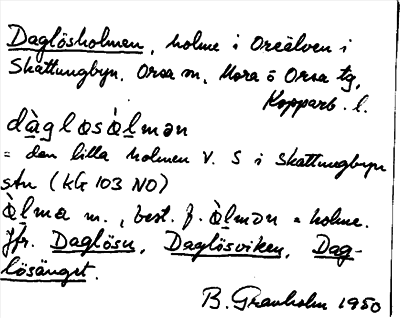 Daglösholmen, holme i Oreälven i
Skattungbyn, Orsa sn, Mora o Orsa tg,
Kopparb. l.
dàgləsòlmən
= den lilla holmen V. S i Skattungbyn
stn (KG 103 NO)
òlma m., best. f. òlmən = holme.
Jfr. Daglösn, Daglösviken, Dag-
lösänget.
B. Granholm 1950